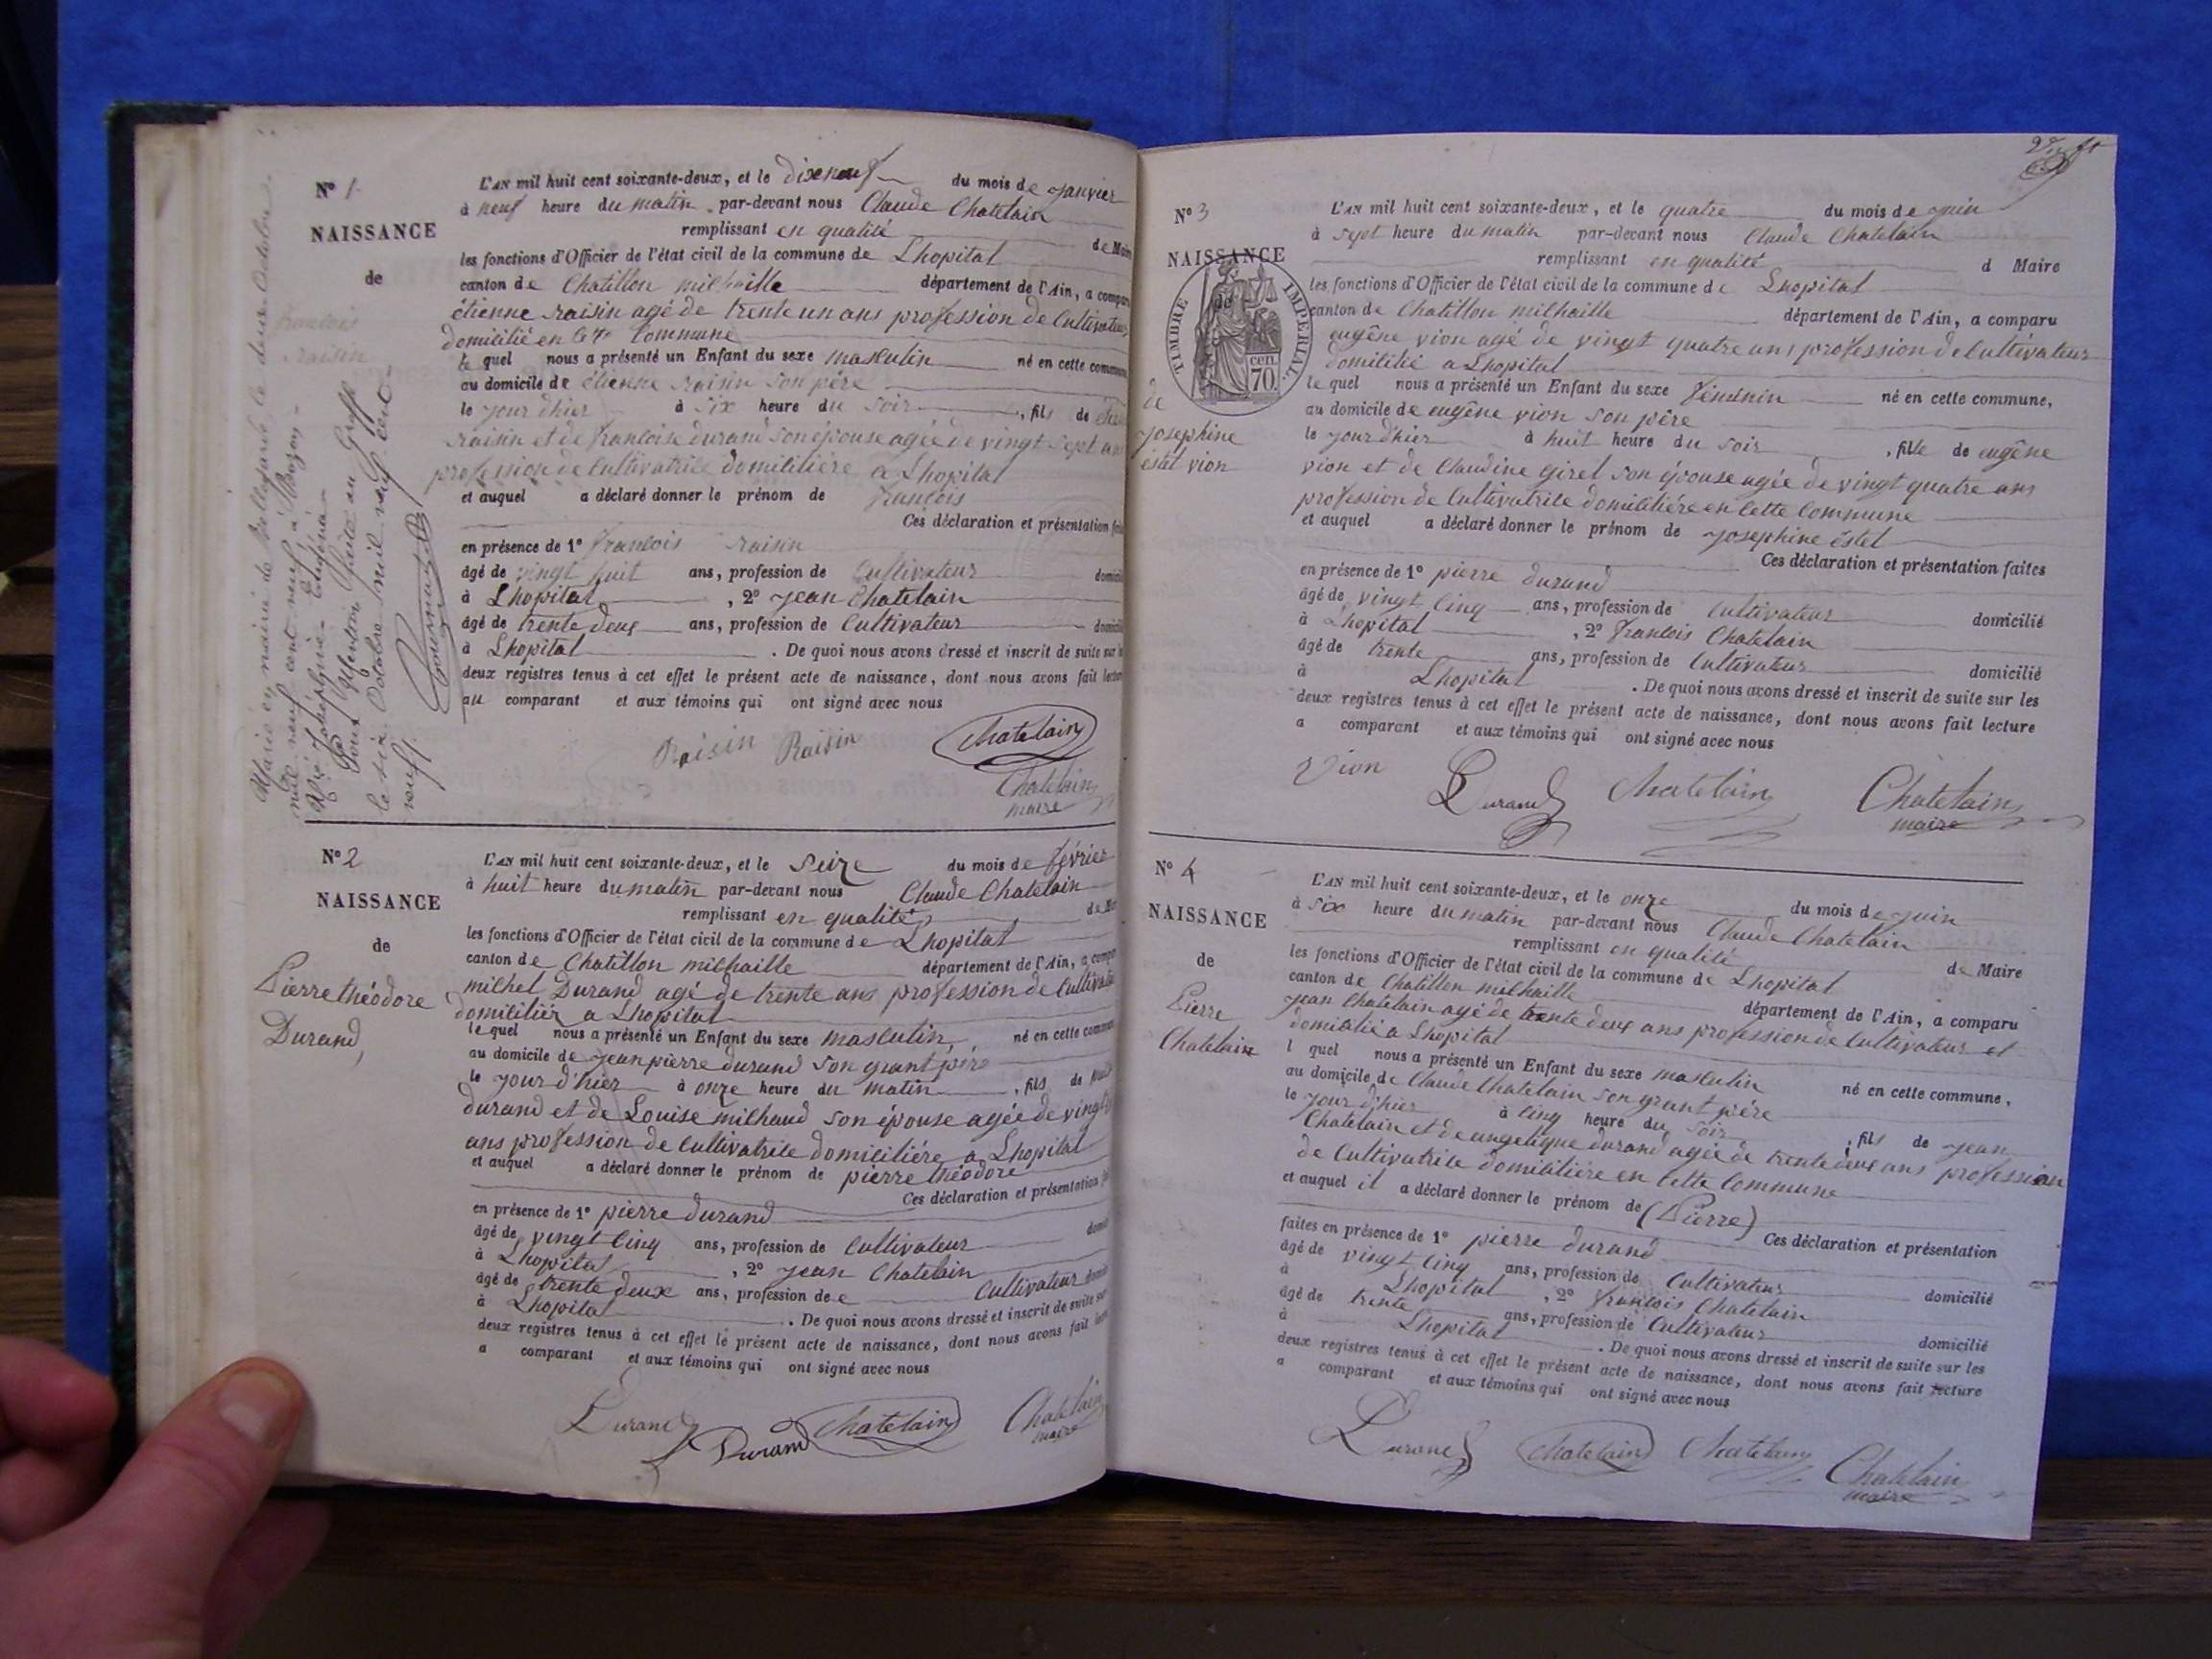 N° 1
NAISSANCE
de
francois
raisin
Marié en mairie de Bellegarde le deux Octobre
mil neuf cent neuf à Mazon
Joséphine Eugénie
Pour Mention faite au Greffe
le six Octobre mil neuf cent
neuf.
L'AN mil huit cent soixante-deux, et le dixneuf du mois de janvier
à neuf heure du matin par-devant nous Claude Chatelain
remplissant en qualité de Maire
les fonctions d'Officier de l'état civil de la commune de Lhopital
canton de Chatillon michaille département de l'Ain, a comparu
étienne raisin agé de trente un ans profession de Cultivateur
domicilié en cette Commune
le quel nous a présenté un Enfant du sexe masculin né en cette commune
au domicile de étienne raisin son père
le jour d'hier à six heure du soir, fils de
raisin et de francoise durand son épouse agée de vingt sept ans
profession de Cultivatrice domicilière a Lhopital
et auquel a déclaré donner le prénom de francois
Ces déclaration et présentation
en présence de 1° francois raisin
âgé de vingt huit ans, profession de Cultivateur
à Lhopital, 2° jean Chatelain
âgé de trente deux ans, profession de Cultivateur
à Lhopital. De quoi nous avons dressé et inscrit de suite sur
deux registres tenus à cet effet le présent acte de naissance, dont nous avons fait lecture
au comparant et aux témoins qui ont signé avec nous
Raisin Raisin Chatelain
Chatelain
maire
N° 2
NAISSANCE
de
Pierre théodore
Durand
L'AN mil huit cent soixante-deux, et le seize du mois de février
à huit heure du matin par-devant nous Claude Chatelain
remplissant en qualité
les fonctions d'Officier de l'état civil de la commune de Lhopital
canton de Chatillon michaille département de l'Ain, a
michel Durand agé de trente ans profession de Cultivateur
domicilièr a Lhopital
le quel nous a présenté un Enfant du sexe masculin né en cette
au domicile de jean pierre durand son grant père
le jour d'hier à onze heure du matin, fils de
durand et de Louise milhaud son épouse agée de vingt
ans profession de Cultivatrice domicilière a Lhopital
et auquel a déclaré donner le prénom de pierre théodore
Ces déclaration et présentation
en présence de 1° pierre durand
âgé de vingt cinq ans, profession de Cultivateur
à Lhopital, 2° jean Chatelain
âgé de trente deux ans, profession de Cultivateur
à Lhopital. De quoi nous avons dressé et inscrit de suite sur
deux registres tenus à cet effet le présent acte de naissance, dont nous avons fait
a comparant et aux témoins qui ont signé avec nous
Durand Durand Chatelain Chatelain
maire
N° 3
NAISSANCE
de
TIMBRE IMPÉRIAL
cen.
70.
de
josephine
éstel vion
L'AN mil huit cent soixante-deux, et le quatre du mois de juin
à sept heure du matin par-devant nous Claude Chatelain
remplissant en qualité d Maire
les fonctions d'Officier de l'état civil de la commune de Lhopital
canton de Chatillon michaille département de l'Ain, a comparu
eugêne vion agé de vingt quatre ans profession de Cultivateur
domicilié a Lhopital
le quel nous a présenté un Enfant du sexe féminin né en cette commune,
au domicile de eugêne vion son père
le jour d'hier à huit heure du soir, fille de eugêne
vion et de Claudine Girel son épouse agée de vingt quatre ans
profession de Cultivatrice domicilière en cette Commune
et auquel a déclaré donner le prénom de josephine éstel
Ces déclaration et présentation faites
en présence de 1° pierre durand
âgé de vingt cinq ans, profession de Cultivateur domicilié
à Lhopital, 2° francois Chatelain
âgé de trente ans, profession de Cultivateur domicilié
à Lhopital. De quoi nous avons dressé et inscrit de suite sur les
deux registres tenus à cet effet le présent acte de naissance, dont nous avons fait lecture
a comparant et aux témoins qui ont signé avec nous
Vion Durand Chatelain Chatelain
maire
N° 4
NAISSANCE
de
Pierre
Chatelain
L'AN mil huit cent soixante-deux, et le onze du mois de juin
à six heure du matin par-devant nous Claude Chatelain
remplissant en qualité de Maire
les fonctions d'Officier de l'état civil de la commune de Lhopital
canton de Chatillon michaille département de l'Ain, a comparu
jean Chatelain agé de trente deux ans profession de Cultivateur et
domicilié a Lhopital
l quel nous a présenté un Enfant du sexe masculin né en cette commune,
au domicile de Claude Chatelain son grant père
le jour d'hier à cinq heure du soir, fils de jean
Chatelain et de angelique durand agée de trente deux ans profession
de Cultivatrice domicilière en cette Commune
et auquel il a déclaré donner le prénom de (Pierre)
Ces déclaration et présentation
faites en présence de 1° pierre durand
âgé de vingt cinq ans, profession de Cultivateur domicilié
à Lhopital, 2° francois Chatelain
âgé de trente ans, profession de Cultivateur domicilié
à Lhopital. De quoi nous avons dressé et inscrit de suite sur les
deux registres tenus à cet effet le présent acte de naissance, dont nous avons fait lecture
a comparant et aux témoins qui ont signé avec nous
Durand Chatelain Chatelain Chatelain
maire